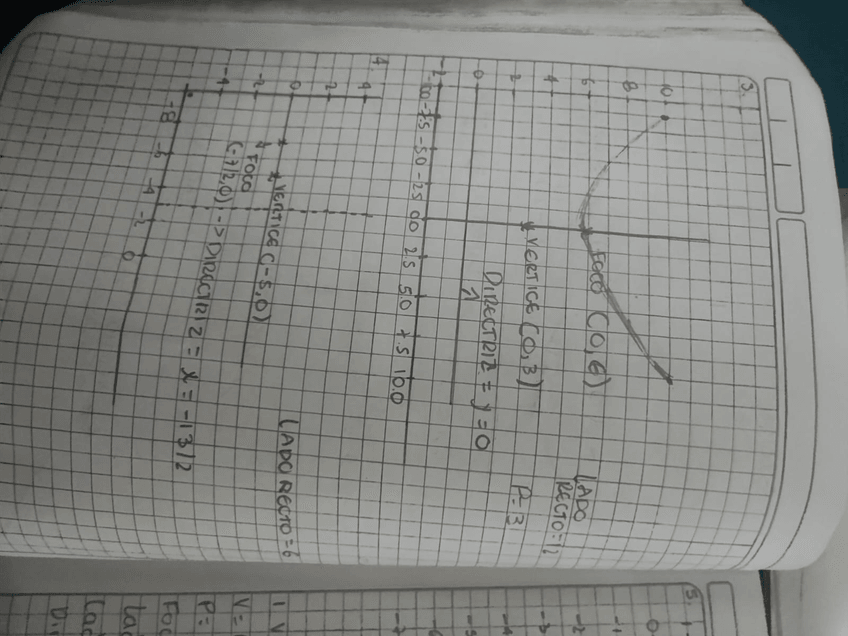 3.
10
8
6
FOCO (0,6)
LADO
RECTO=12
4
P=3
2
VERTICE (0,3)
0
DIRECTRIZ = y=0
-2
-7.5 -5.0 -2.5 0.0 2.5 5.0 7.5 10.0
4.
4
2
0
VERTICE (-5,0)
LADO RECTO=6
-2
FOCO
-4
(-7/2,0) -> DIRECTRIZ = x = -13/2
-8 -6 -4 -2 0
5.
0
-1
-2
-3
-4
-5
-6
-7
1 V
V=
P=
Foc
Lad